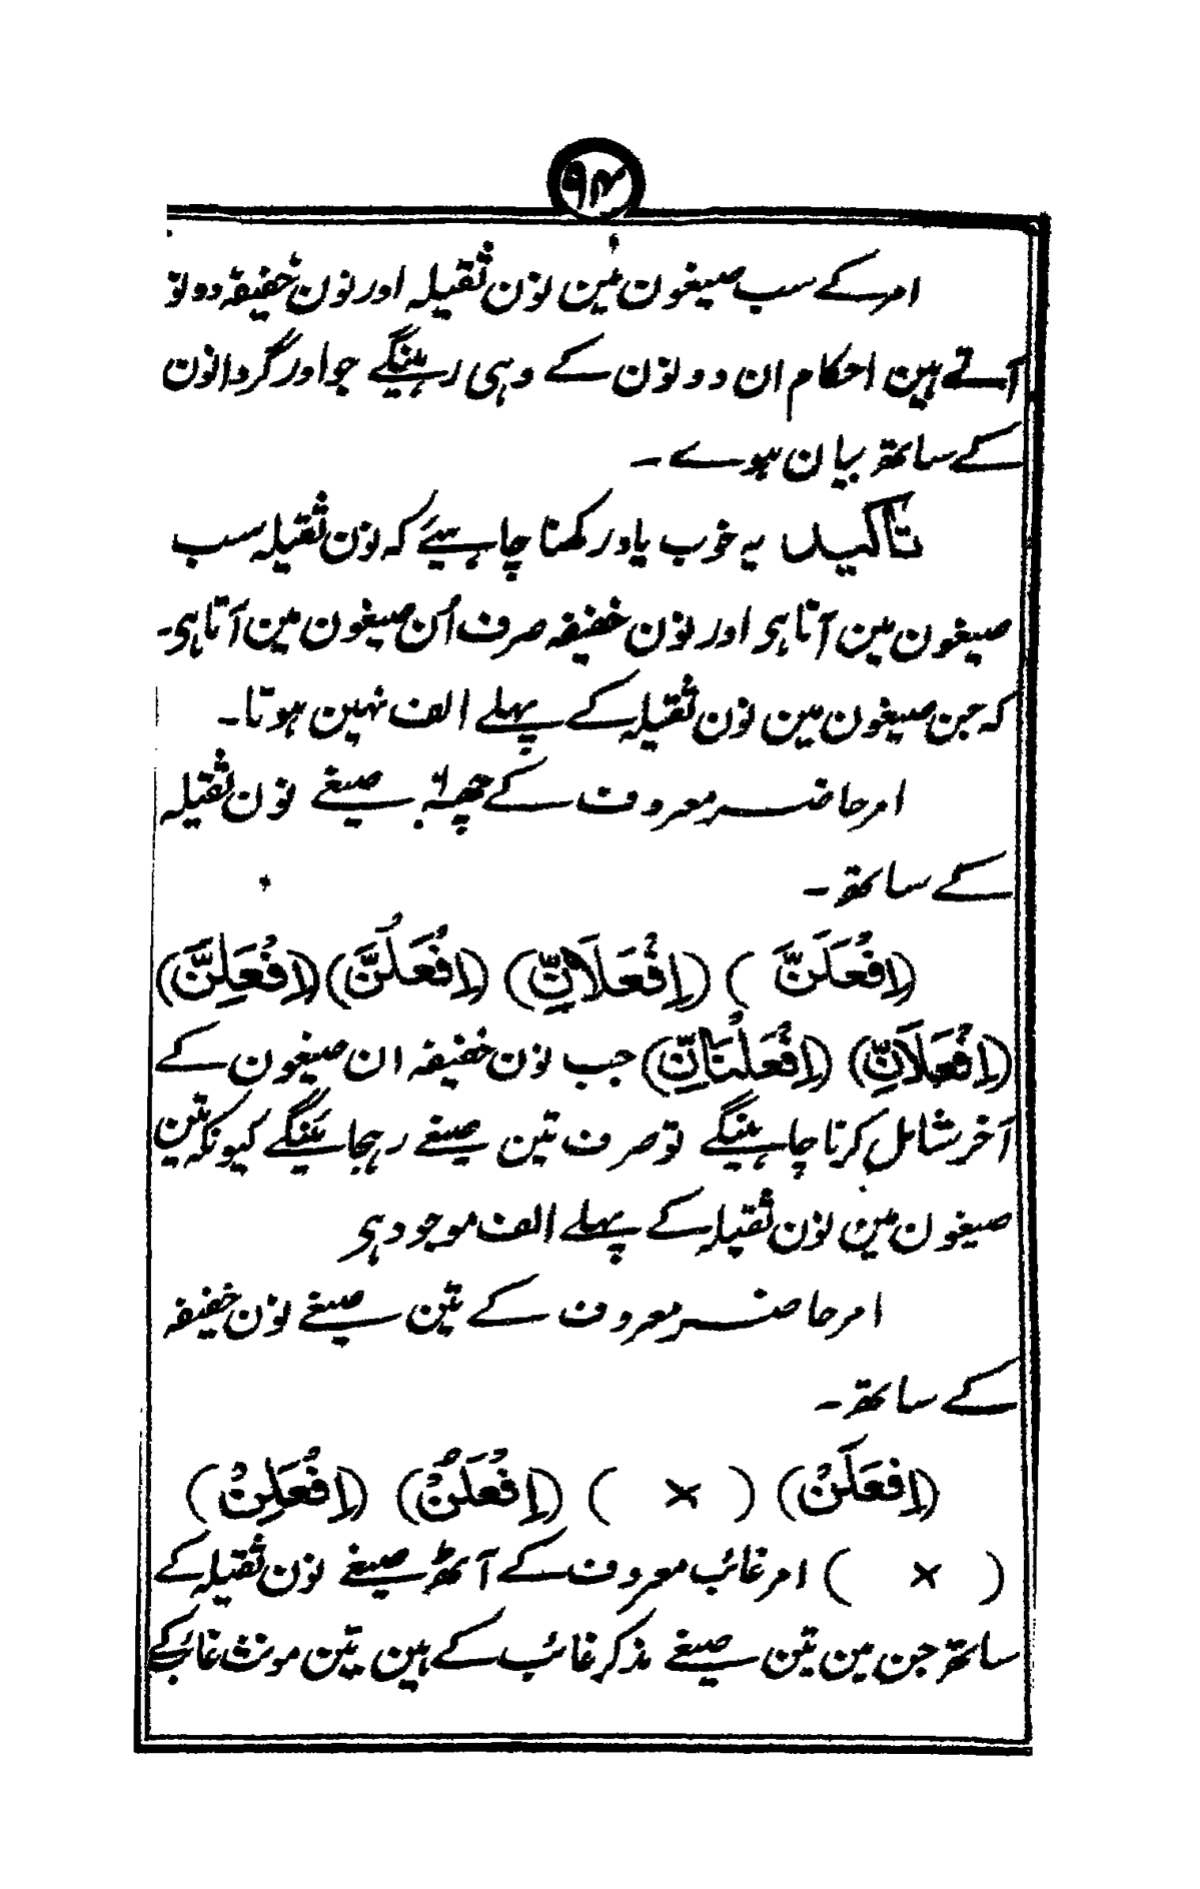 ۹۴
امر کے سب صیغون مین نون ثقیلہ اور نون خفیفہ دونو
آتے ہین احکام ان دو نون کے وہی رہینگے جو اور گردانون
کے ساتھ بیان ہوے ۔
تاکید یہ خوب یاد رکھنا چاہیئے کہ نون ثقیلہ سب
صیغون مین آتا ہی اور نون خفیفہ صرف اُن صیغون مین آتا ہی۔
کہ جن صیغون مین نون ثقیلہ کے پہلے الف نہین ہوتا۔
امر حاضر معروف کے چھہ صیغے نون ثقیلہ
کے ساتھ ۔
(اِفْعَلَنَّ) (اِفْعَلَانِّ) (اِفْعَلُنَّ) (اِفْعَلِنَّ)
(اِفْعَلَانِّ) (اِفْعَلْنَانِّ) جب نون خفیفہ ان صیغون کے
آخر شامل کرنا چاہینگے تو صرف تین صیغے رہجائینگے کیونکہ تین
صیغون مین نون ثقیلہ کے پہلے الف موجود ہی
امر حاضر معروف کے تین صیغے نون خفیفہ
کے ساتھ ۔
(اِفْعَلَنْ) ( × ) (اِفْعَلُنْ) (اِفْعَلِنْ)
( × ) امر غائب معروف کے آٹھ صیغے نون ثقیلہ کے
ساتھ جن مین تین صیغے مذکر غائب کے ہین تین مونث غائب کے